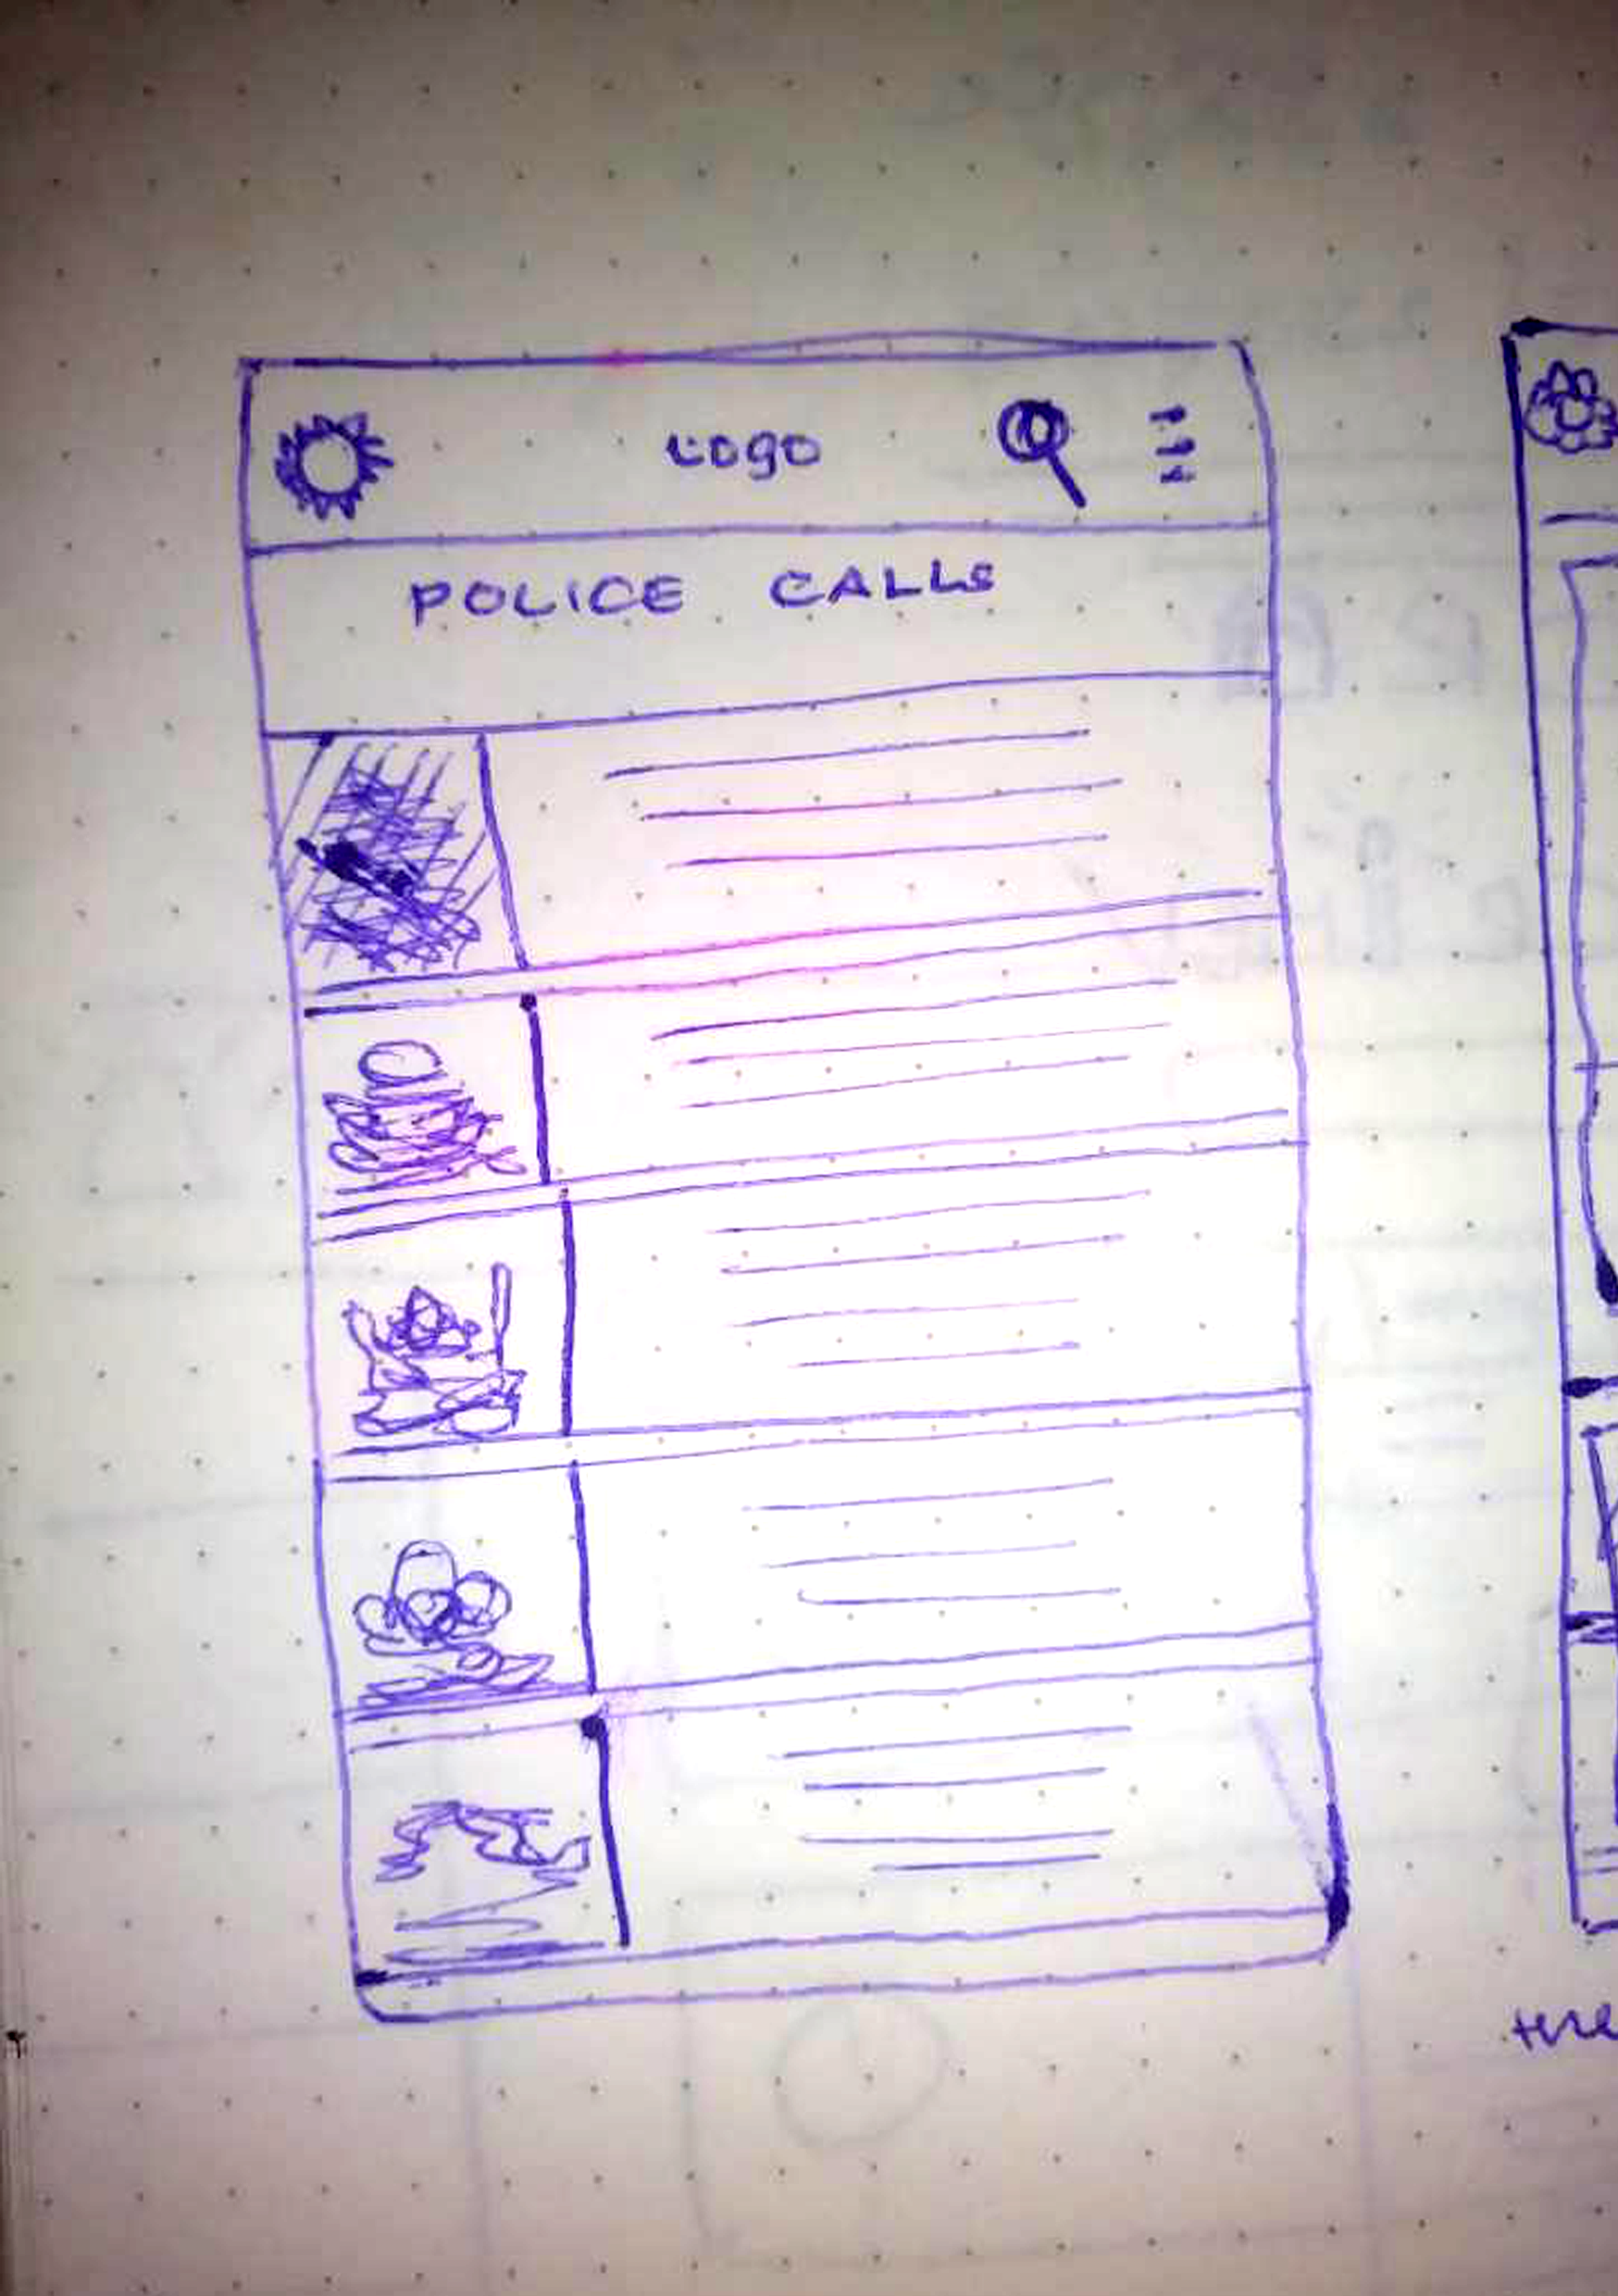 Logo
POLICE CALLS